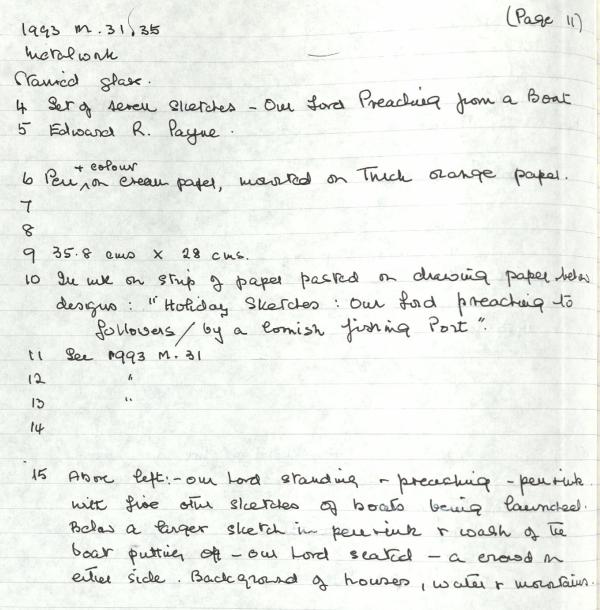 (Page 11)
1993 M.31,35
Metalwork
Stained glass.
4 Set of seven sketches - Our Lord Preaching from a Boat
5 Edward R. Payne.
+ colour
6 Pen ^ on cream paper, mounted on Thick orange paper.
7
8
9 35.8 cms x 28 cms.
10 In ink on strip of paper pasted on drawing paper below
designs : "Holiday Sketches : Our Lord preaching to
followers / by a Cornish fishing Port".
11 See 1993 M.31
12 "
13 "
14
15 Above left:- our Lord standing + preaching - pen+ink
with five other sketches of boats being launched.
Below a larger sketch in pen+ink + wash of the
boat putting off - our Lord seated - a crowd on
either side. Background of houses, water + mountains.